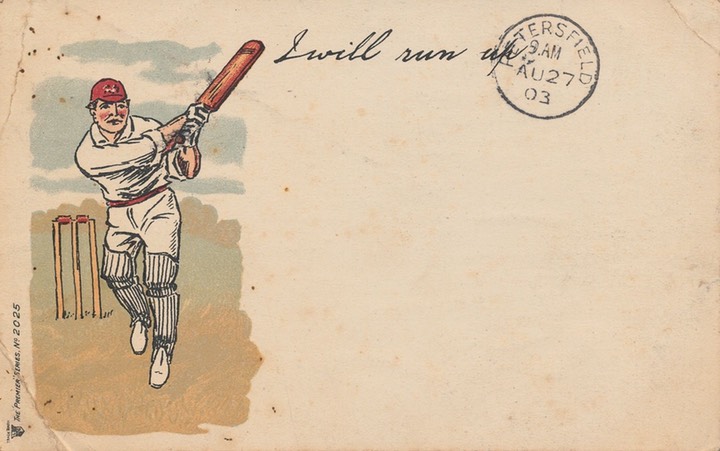 I will run up
PETERSFIELD
9.AM
AU 27
03
THE "PREMIER" SERIES. No 2025